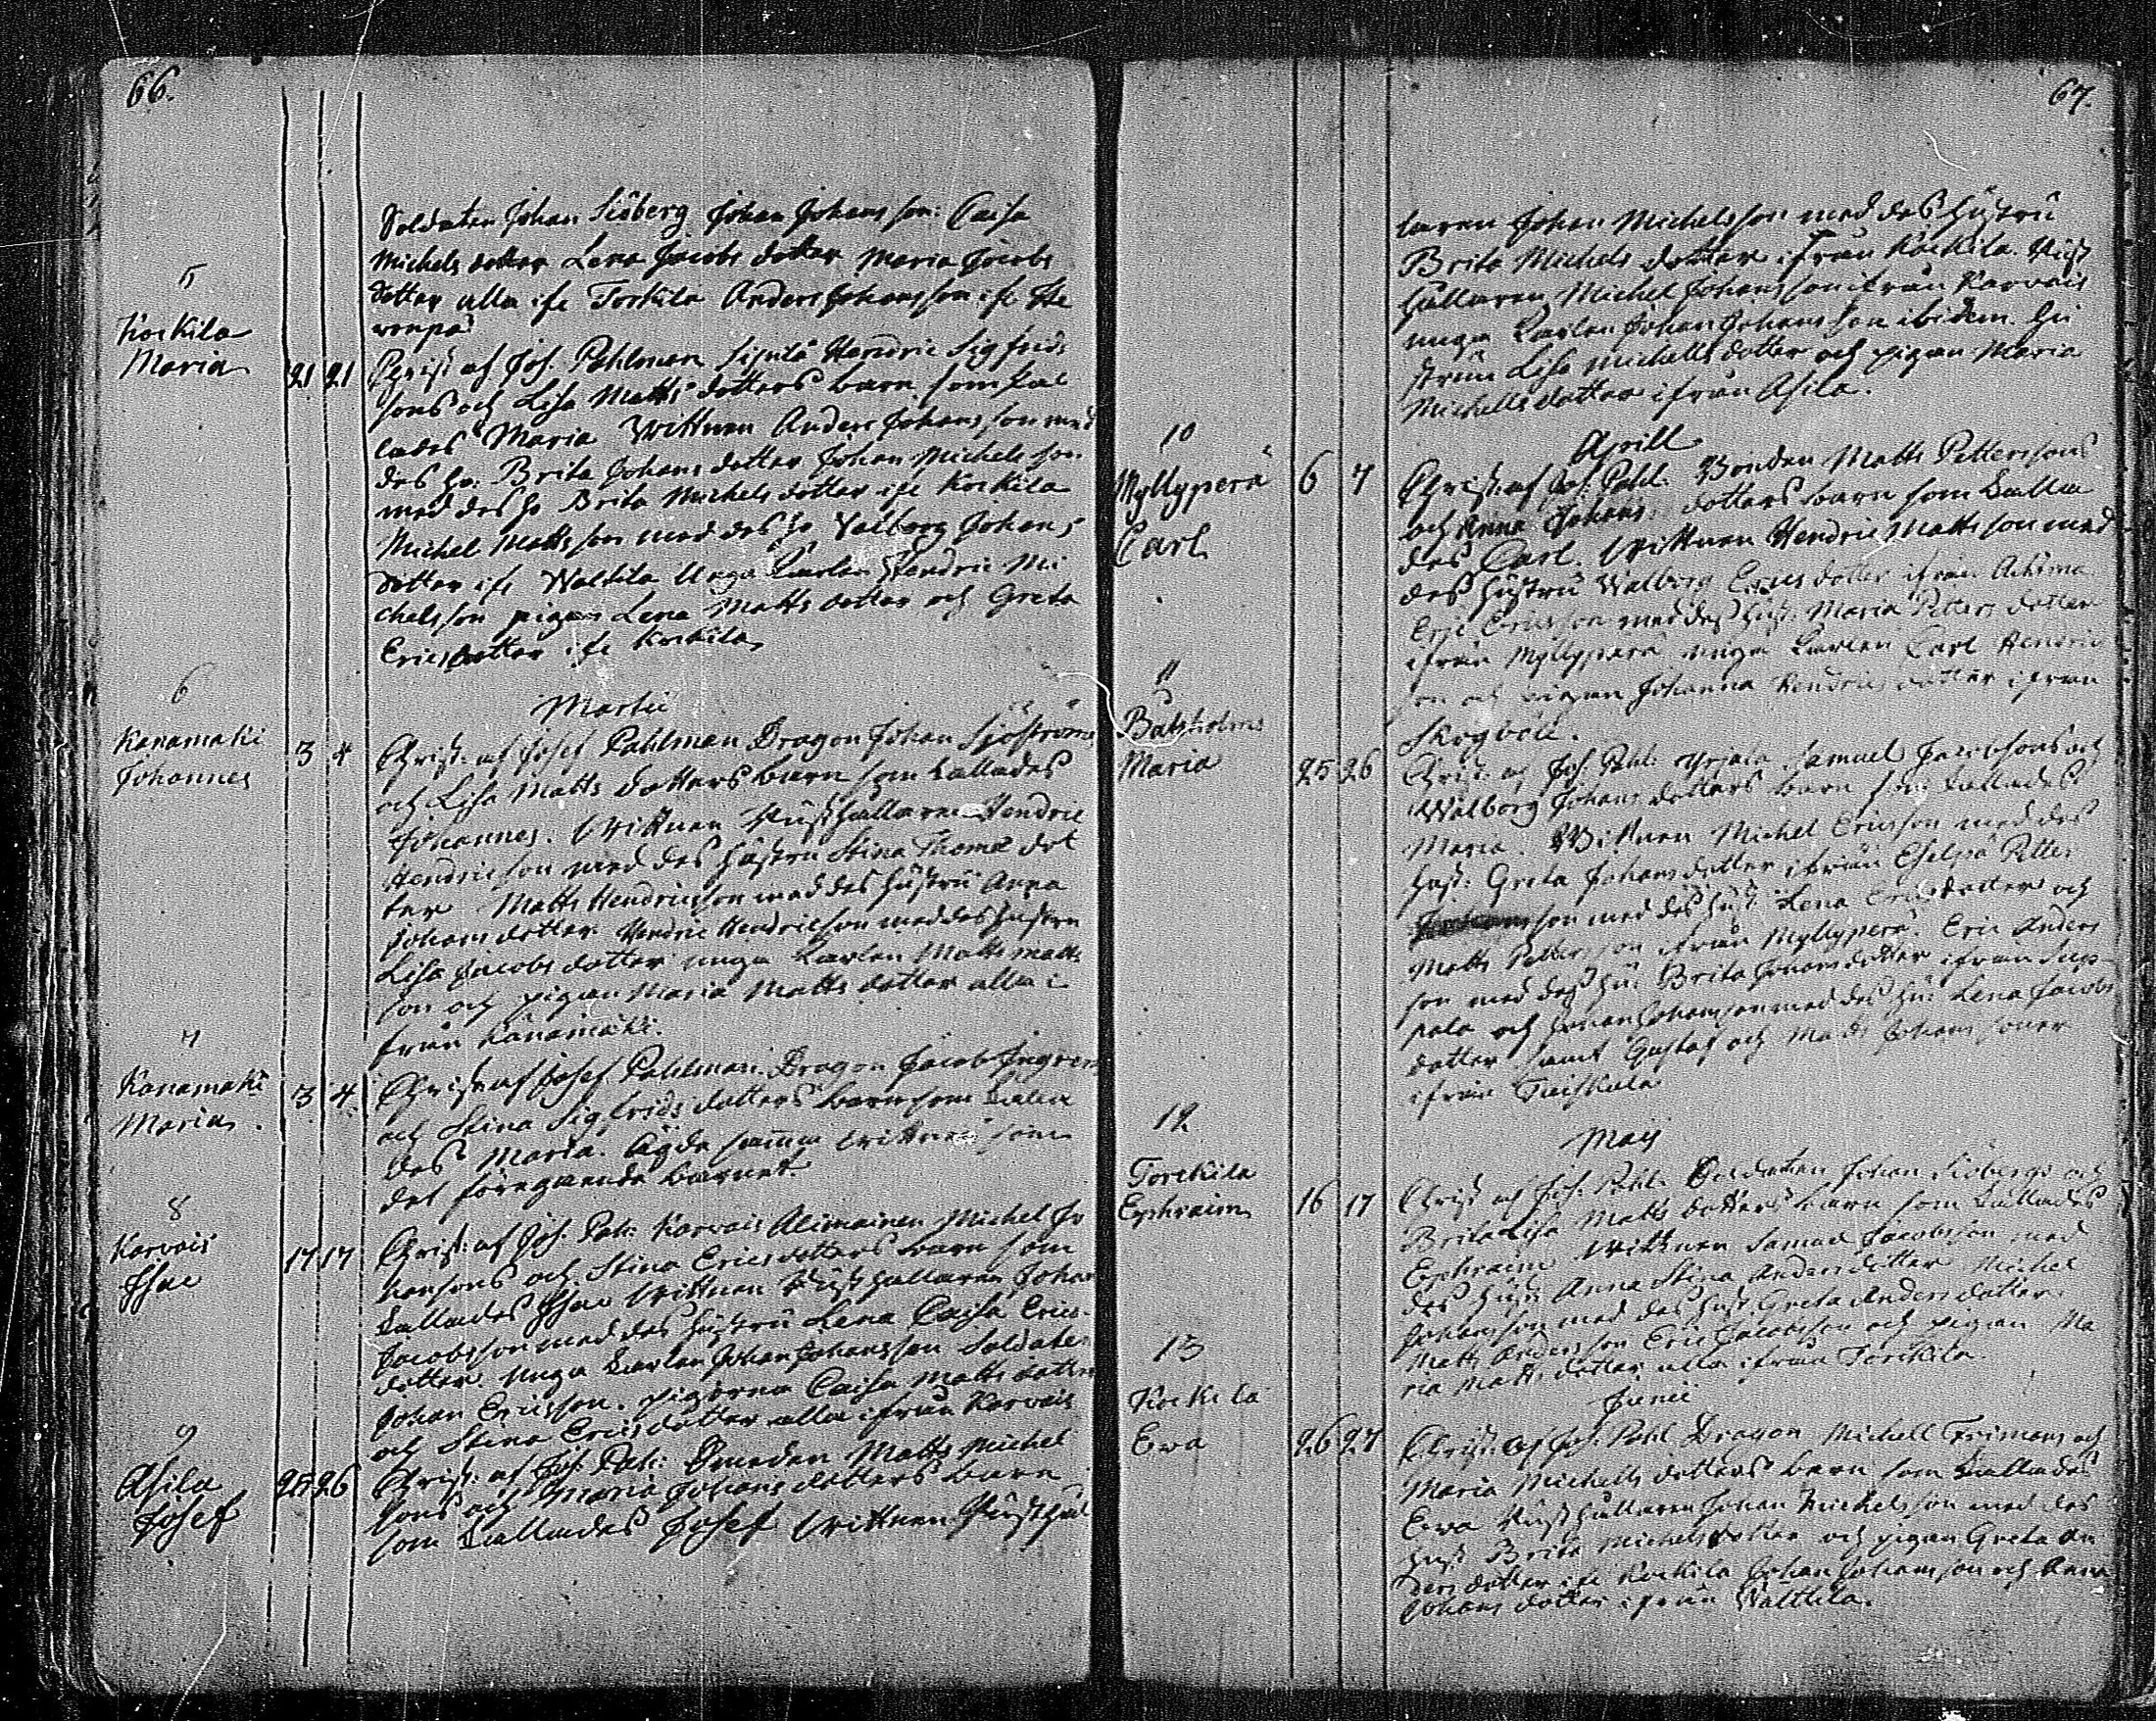 66.
Soldaten Johan Siöberg Johan Johansson: Caisa
Michels dotter Lena Jacobs dotter Maria Jacobs
dotter alla ifr Torkila Anders Johansson ifr
5
Kockila
Maria
21 21
Christ af Jos. Pahlman Hendric Sigfrids
sons och Lisa Matts dotters barn som kal
lades Maria Wittnen Anders Johansson med
des h. Brita Johans dotter Johan Michelsson
med des h Brita Michels dotter ifr Kockila
Michel Mattsson med des h Valborg Johans
dotter ifr Waltila Unga Karlen Hendric Mi
chelsson pigan Lena Matts dotter och Greta
Ericsdotter ifr Kockila
Martii
6
Kanamaki
Johannes
3 4
Christ. af Josef Pahlman Dragon Johan Sjöströms
och Lisa Matts dotters barn som kallades
Johannes. Wittnen Rusthallaren Hendric
Hendricsson med des hustru Stina Thomæ dot
ter Matts Hendricsson med des hustru Anna
Johans dotter Hendric Hendricsson med des hustru
Lisa Jacobs dotter unga karlen Matts Matts
son och pigan Maria Matts dotter alla i
från Kanamäki.
7
Kanamaki
Maria.
3 4
Christ af Josef Pahlman Dragon Jacob
och Stina Sigfrids dotters barn som kalla
des Maria. ägde samma wittnen som
det föregaende barnet.
8
Karvois
Isac
17 17
Christ. af Jos. Pah: Karvois Alimainen Michel Jo
hansons och Stina Ericsdotters barn som
kallades Isac Wittnen Rusthallaren Johan
Jacobsson med des hustru Lena Caisa Erics-
dotter. unga karlen Johan Johansson Soldaten
Johan Ericsson. pigorna Caisa Matts dotter
och Stina Ericsdotter alla ifrån Karvois
9
Asila
Josef
25 26
Christ: af Jos. Pah: Matts Michel
sons och Maria Johans dotters barn
som kallades Josef Wittnen Rusthal
67.
laren Johan Michelsson med des hustru
Brita Michels dotter ifrån Kockila. Rust
hallaren Michel Johansson ifrån Karvois
unga karlen Johan Johansson ibidem. Hu
strun Lisa Michells dotter och pigan Maria
Michells dotter ifrån Asila.
Aprill
10
Myllyperä
Carl
6 7
Christ. af Jos. Pahl. Bonden Matts Pettersons
och Anna Johans dotters barn som kalla
des Carl. Wittnen Hendric Mattsson med
des hustru Walborg Erics dotter ifrån
Eric Ericsson med des hust. Maria Petters dotter
ifrån Myllyperä unga karlen Carl Hendrics
son och pigan Johanna Hendrics dotter ifrån
Skogböle.
11
Båtsholms
Maria
25 26
Christ. af Jos. Pahl: Samuel Jacobsons och
Walborg Johans dotters barn som kallades
Maria. Wittnen Michel Ericsson med des
hust: Greta Johans dotter ifrån Petter
son med des hust: Lena Ericsdotter och
Matts Pettersson ifrån Myllyperä. Eric Anders
son med des hu: Brita Johans dotter ifrån Sep-
pala och Johan Johansson med des hu: Lena Jacobs
dotter samt Gustaf och Matts Johanssöner
ifrån Tuiskula
Maij
12
Torckila
Ephraim
16 17
Christ af Jos. Pahl. Soldaten Johan Siöbergs och
Brita Lisa Matts dotters barn som kallades
Ephraim Wittnen Samuel Jacobsson med
des hust Anna Stina Anders dotter Michel
Johansson med des hust. Greta Anders dotter
Matts Andersson Eric Jacobsson och pigan Ma
ria Matts dotter alla ifrån Torckila.
Junii
13
Kockila
Ewa
26 27
Christ: af Jos. Pahl Dragon Michell Frimans och
Maria Michells dotters barn som kallades
Ewa Rusthallaren Johan Michelsson med des
hust Brita Michelsdotter och pigan Greta An
ders dotter ifr Kockila Johan Johansson och Anna
Johans dotter ifrån Walttila.